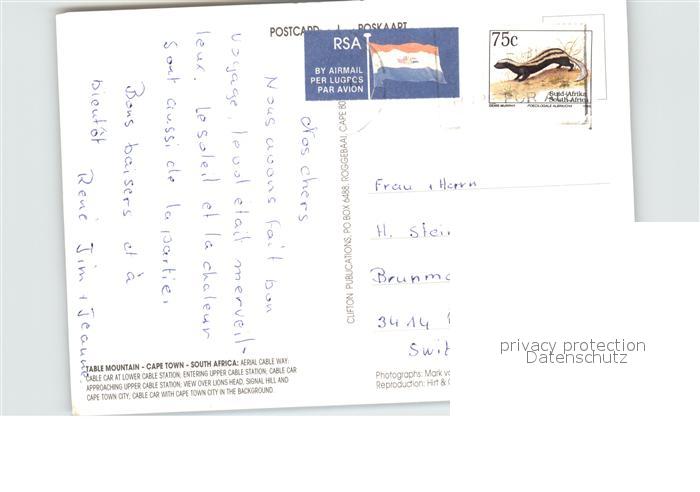 POSTCARD
POSKAART
RSA
BY AIRMAIL
PER LUGPOS
PAR AVION
75c
Suid-Afrika
South Africa
DENIS MURPHY
POECILOGALE ALBINUCHA
Nos chers
Nous avons fait bon
voyage, le vol etait merveil-
leux. Le soleil et la chaleur
sont aussi de la partie.
Bons baisers et à
bientôt
René Jim + Jeanne
CLIFTON PUBLICATIONS, PO BOX 6488, ROGGEBAAI, CAPE 80
Frau + Herrn
H. Stei
Brunm
3414
Swit
TABLE MOUNTAIN - CAPE TOWN - SOUTH AFRICA: AERIAL CABLE WAY:
CABLE CAR AT LOWER CABLE STATION; ENTERING UPPER CABLE STATION; CABLE CAR
APPROACHING UPPER CABLE STATION; VIEW OVER LIONS HEAD, SIGNAL HILL AND
CAPE TOWN CITY, CABLE CAR WITH CAPE TOWN CITY IN THE BACKGROUND
Photographs: Mark v
Reproduction: Hirt &
privacy protection
Datenschutz